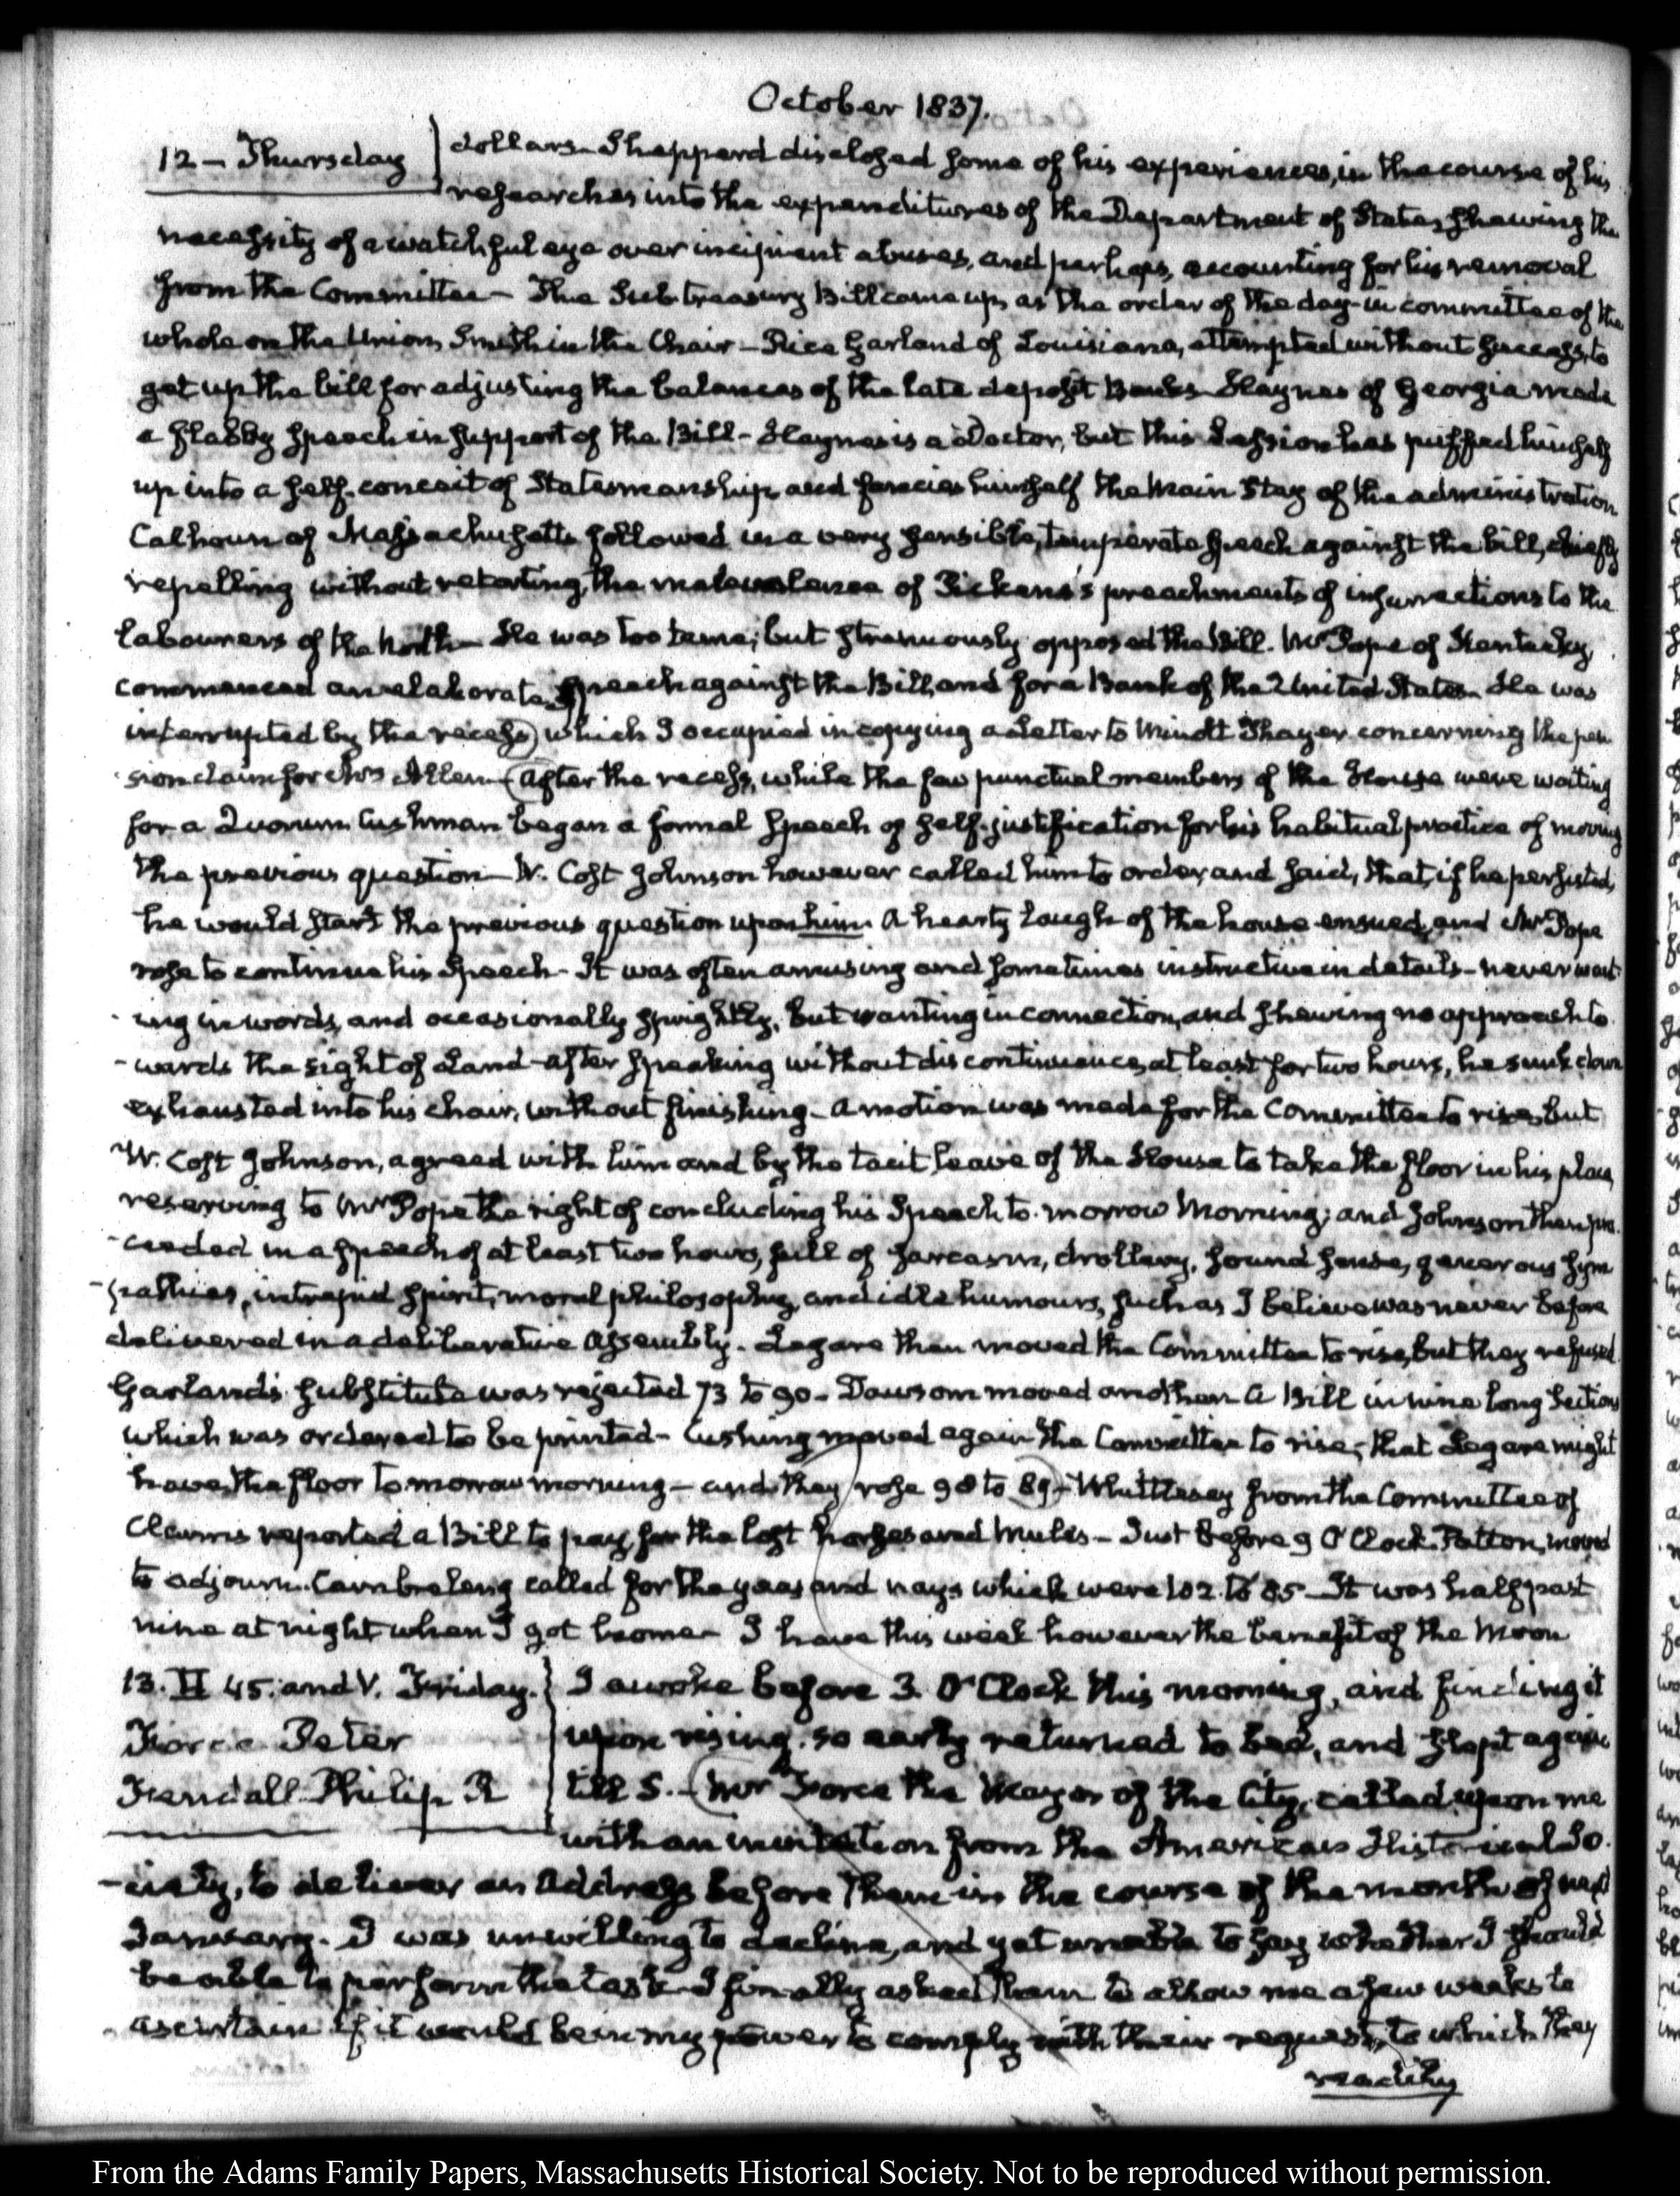 October 1837.
12 – Thursday
dollars – Shepperd disclosed some of his experiences, in the course of his
researches into the expenditures of the Department of State, shewing the
necessity of a watchful eye over incipient abuses, and perhaps, accounting for his removal
from the Committee – The Sub treasury Bill came up, as the order of the day – in committee of the
whole on the Union, Smith in the Chair – Rice Garland of Louisiana, attempted without success, to
get up the bill for adjusting the balances of the late deposit Banks – Haynes of Georgia made
a flabby speech in support of the Bill – Haynes is a Doctor, but this Session has puffed himself
up into a self-conceit of Statesmanship, and fancies himself the main Stay of the administration
Calhoun of Massachusetts followed in a very sensible, temperate speech against the bill, chiefly
repelling without retorting, the malevolence of Pickens's preachments of insurrections to the
labourers of the North – He was too tame; but strenuously opposed the Bill. Mr Pope of Kentucky,
commenced an elaborate Speech against the Bill, and for a Bank of the United States – He was
interrupted by the recess) which I occupied in copying a Letter to Minott Thayer concerning the pen
sion claim for Mrs Allen – (After the recess, while the few punctual members of the House were waiting
for a Quorum Cushman began a formal speech of self-justification for his habitual practice of moving
the previous question – W. Cost Johnson however called him to order, and said, that, if he persisted,
he would start the previous question upon him. A hearty laugh of the house ensued, and Mr Pope
rose to continue his Speech – It was often amusing and sometimes instructive in details – never want
ing in words, and occasionally sprightly, but wanting in connection, and shewing no approach to
- wards the sight of Land – after speaking without discontinuance, at least for two hours, he sunk down
exhausted into his chair, without finishing – A motion was made for the Committee to rise, but
W. Cost Johnson, agreed with him and by the tacit leave of the House to take the floor in his place
reserving to Mr Pope the right of concluding his Speech to-morrow Morning; and Johnson then pro
- ceeded in a speech of at least two hours, full of sarcasm, drollery, sound sense, generous sym
- pathies, intrepid spirit, moral philosophy, and idle humours, such as I believe was never before
delivered in a deliberative Assembly. Legare then moved the Committee to rise, but they refused
Garland's substitute was rejected 73 to 90 – Dawson moved another. A Bill in nine long Sections
which was ordered to be printed – Cushing moved again the Committee to rise, that Legare might
have the floor to morrow morning – and they rose 98 to 89) – Whittlesey from the Committee of
Claims reported a Bill to pay for the lost horses and Mules – Just before 9 O'Clock Patton, moved
to adjourn. Cambreleng called for the yeas and nays which were 102 to 85 – It was half past
nine at night when I got home – I have this week however the benefit of the Moon
13. II 45. and V. Friday.
Force Peter
Fendall Philip R
I awoke before 3. O'Clock this morning, and finding it
upon rising, so early returned to bed, and slept again
till 5. – (Mr Force the Mayor of the City, called upon me
with an invitation from the American Historical So
- ciety, to deliver an Address before them in the course of the month of next
January. I was unwilling to decline, and yet unable to say whether I should
be able to perform the task – I finally asked them to allow me a few weeks to
ascertain if it would be in my power to comply with their request, to which they
readily
From the Adams Family Papers, Massachusetts Historical Society. Not to be reproduced without permission.